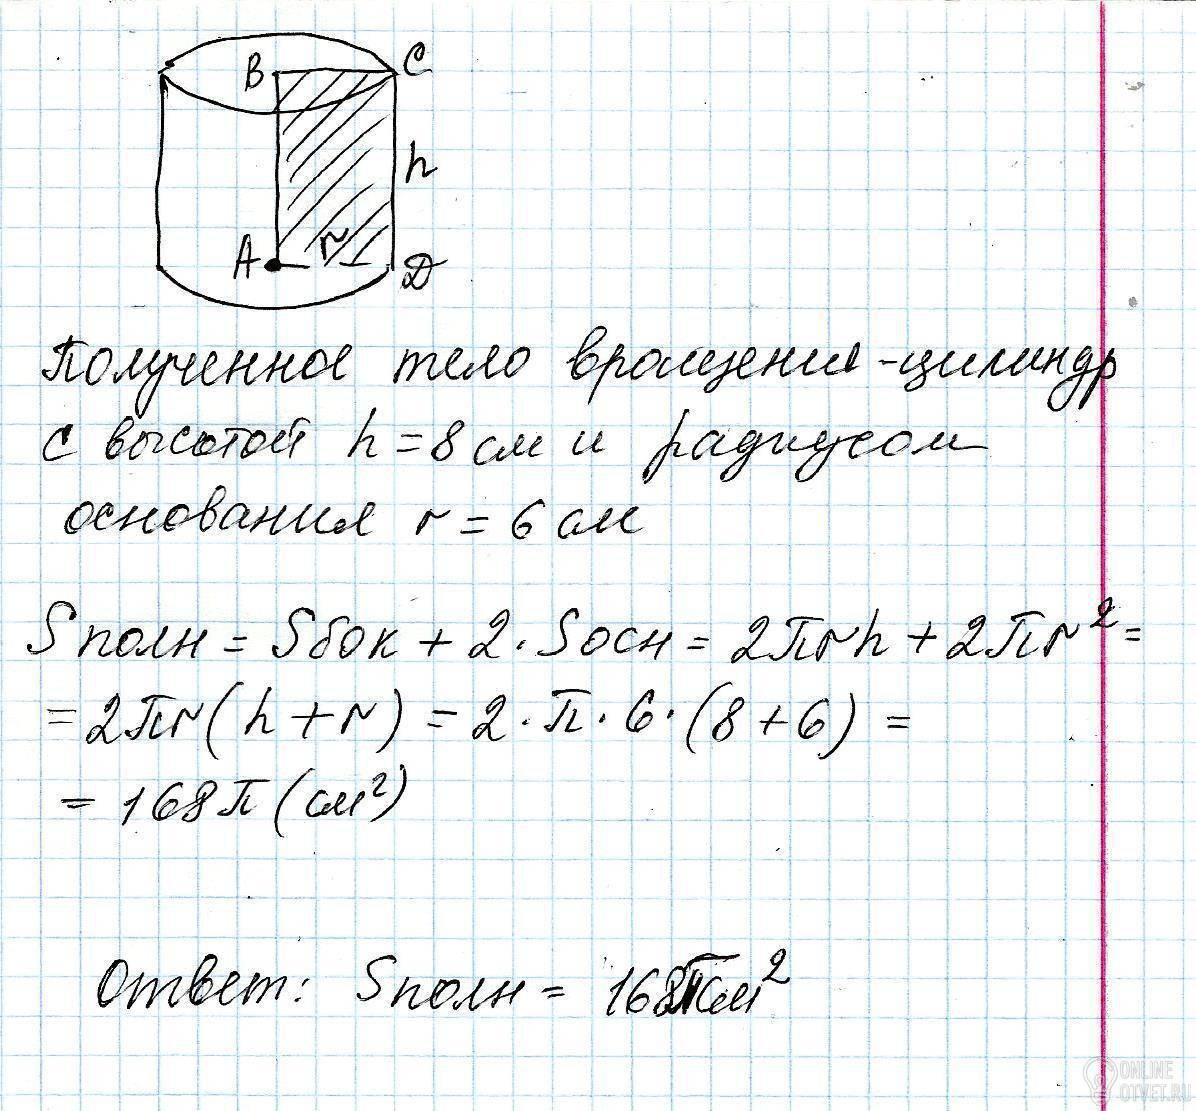 B
C
h
A
r
D
Полученное тело вращения - цилиндр
с высотой h = 8 см и радиусом
основания r = 6 см
Sполн = Sбок + 2 · Sосн = 2πrh + 2πr² =
= 2πr(h + r) = 2 · π · 6 · (8 + 6) =
= 168π (см²)
Ответ: Sполн = 168π см²
ONLINE
OTVET.RU